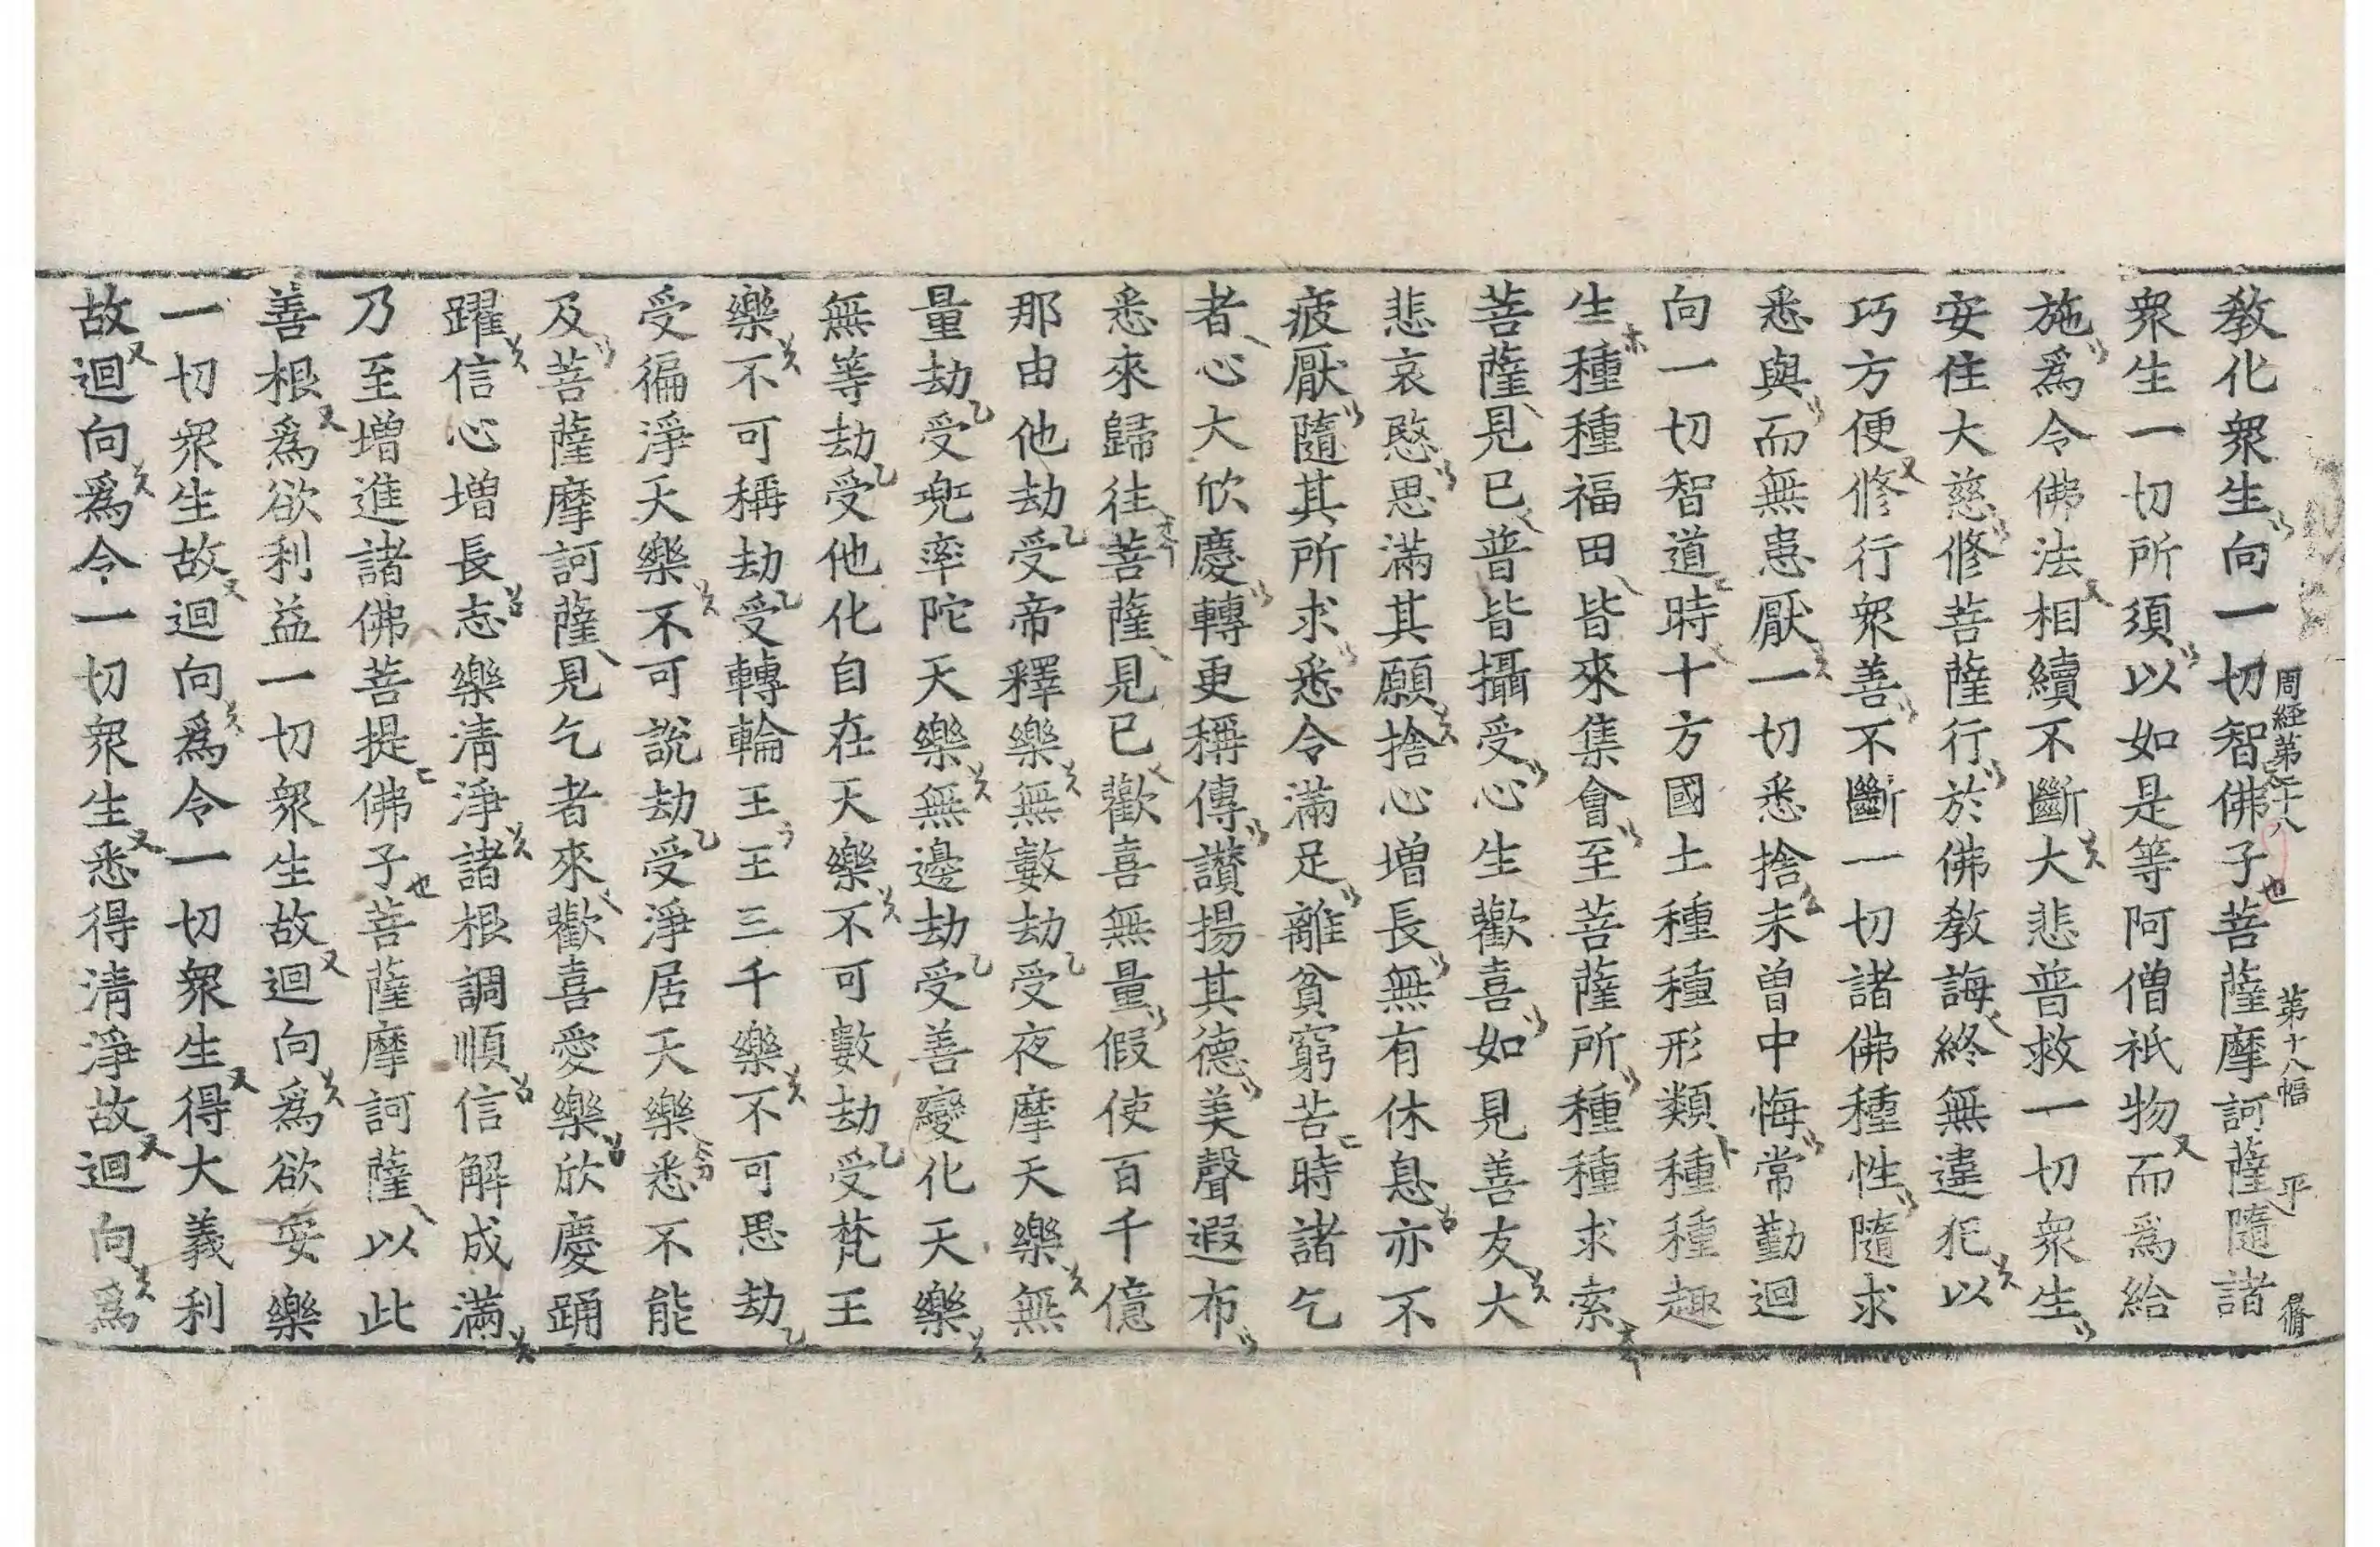 周經第二十八 第十八幅 平
教化衆生向一切智佛子菩薩摩訶薩隨諸
衆生一切所須以如是等阿僧祇物而爲給
施爲令佛法相續不斷大悲普救一切衆生
安住大慈修菩薩行於佛教誨終無違犯以
巧方便修行衆善不斷一切諸佛種性隨求
悉與而無患厭一切悉捨未曾中悔常勤迴
向一切智道時十方國土種種形類種種趣
生種種福田皆來集會至菩薩所種種求索
菩薩見已普皆攝受心生歡喜如見善友大
悲哀愍思滿其願捨心增長無有休息亦不
疲厭隨其所求悉令滿足離貧窮苦時諸乞
者心大欣慶轉更稱傳讚揚其德美聲遐布
悉來歸往菩薩見已歡喜無量假使百千億
那由他劫受帝釋樂無數劫受夜摩天樂無
量劫受兜率陀天樂無邊劫受善變化天樂
無等劫受他化自在天樂不可數劫受梵王
樂不可稱劫受轉輪王王三千樂不可思劫
受徧淨天樂不可說劫受淨居天樂悉不能
及菩薩摩訶薩見乞者來歡喜愛樂欣慶踊
躍信心增長志樂清淨諸根調順信解成滿
乃至增進諸佛菩提佛子菩薩摩訶薩以此
善根爲欲利益一切衆生故迴向爲欲安樂
一切衆生故迴向爲令一切衆生得大義利
故迴向爲令一切衆生悉得清淨故迴向爲